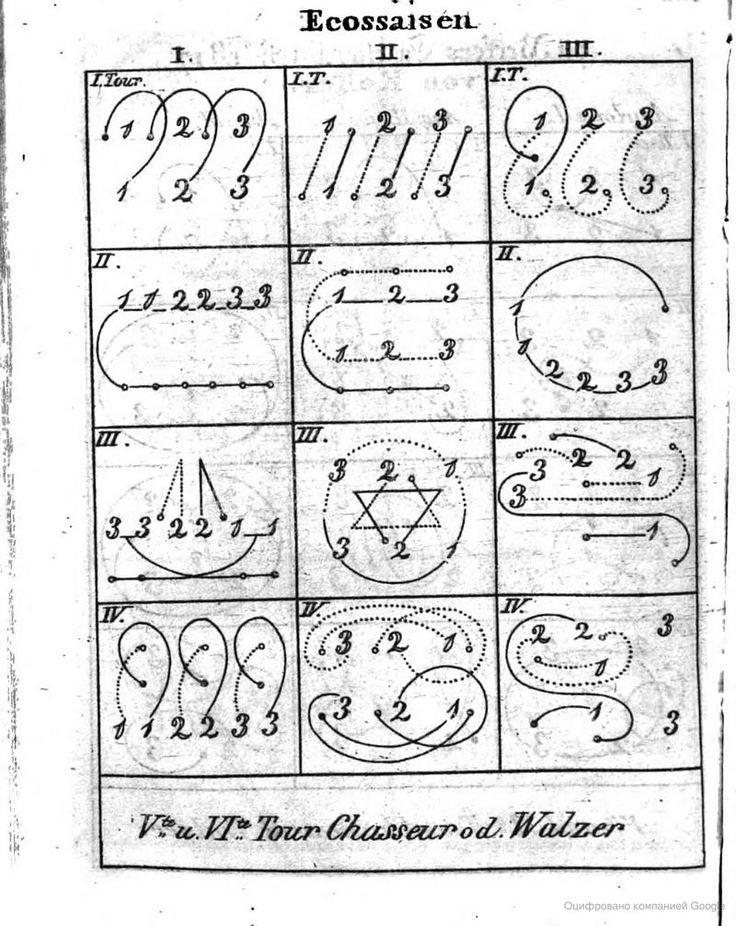 Ecossaisen
I. II. III.
I. Tour.
1 2 3
1 2 3
I.T.
1 2 3
1 2 3
I.T.
1 2 3
1 2 3
II.
1 1 2 2 3 3
II.
1 2 3
1 2 3
II.
1
1
2 2 3 3
III.
3 3 2 2 1 1
III.
3 2 1
3 2 1
III.
2 2
3 1
3
1
IV.
1 1 2 2 3 3
IV.
3 2 1
3 2 1
IV.
2 2 3
1
1 3
Vte u. VIte Tour Chasseur od. Walzer
Оцифровано компанией Google